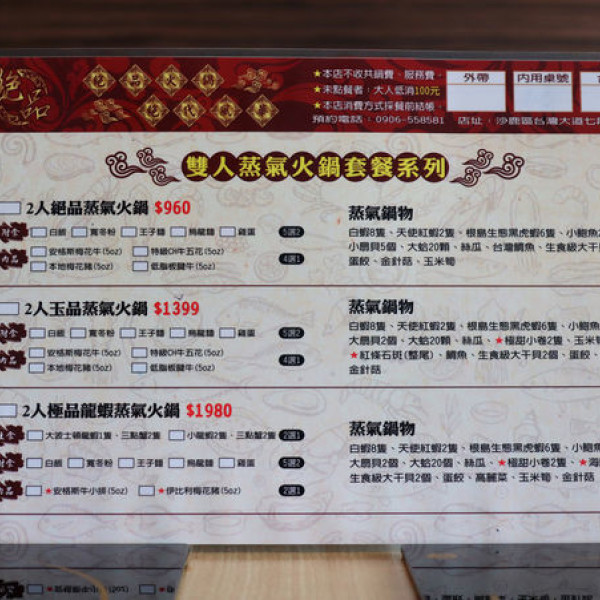 絕品
絕品火鍋
★本店不收共鍋費、服務費。
★未點餐者：大人低消100元
★本店消費方式採餐前結帳。
預約電話：0906-558581 店址：沙鹿區台灣大道七段
外帶 內用桌號
雙人蒸氣火鍋套餐系列
2人絕品蒸氣火鍋 $960
附餐 白飯 寬冬粉 王子麵 烏龍麵 雞蛋 5選2
肉品 安格斯梅花牛(5oz) 特級CH牛五花(5oz) 4選1
本地梅花豬(5oz) 低脂板腱牛(5oz)
蒸氣鍋物
白蝦8隻、天使紅蝦2隻、根島生態黑虎蝦6隻、小鮑魚2
小扇貝5個、大蛤20顆、絲瓜、台灣鯛魚、生食級大干貝
蛋餃、金針菇、玉米筍
2人玉品蒸氣火鍋 $1399
附餐 白飯 寬冬粉 王子麵 烏龍麵 雞蛋 5選2
肉品 安格斯梅花牛(5oz) 特級CH牛五花(5oz) 4選1
本地梅花豬(5oz) 低脂板腱牛(5oz)
蒸氣鍋物
白蝦8隻、天使紅蝦2隻、根島生態黑虎蝦6隻、小鮑魚
大扇貝2個、大蛤20顆、絲瓜、★極甜小卷2隻、玉米筍
★紅條石斑(整尾)、鯛魚、生食級大干貝2個、蛋餃、
金針菇
2人極品龍蝦蒸氣火鍋 $1980
大波士頓龍蝦1隻、三點蟹2隻 小龍蝦2隻、三點蟹2隻 2選1
附餐 白飯 寬冬粉 王子麵 烏龍麵 雞蛋 5選2
肉品 ★安格斯牛小排(5oz) ★伊比利梅花豬(5oz) 2選1
蒸氣鍋物
白蝦8隻、天使紅蝦2隻、根島生態黑虎蝦6隻、小鮑魚
大扇貝2個、大蛤20顆、絲瓜、★極甜小卷2隻、★海
生食級大干貝2個、蛋餃、高麗菜、玉米筍、金針菇